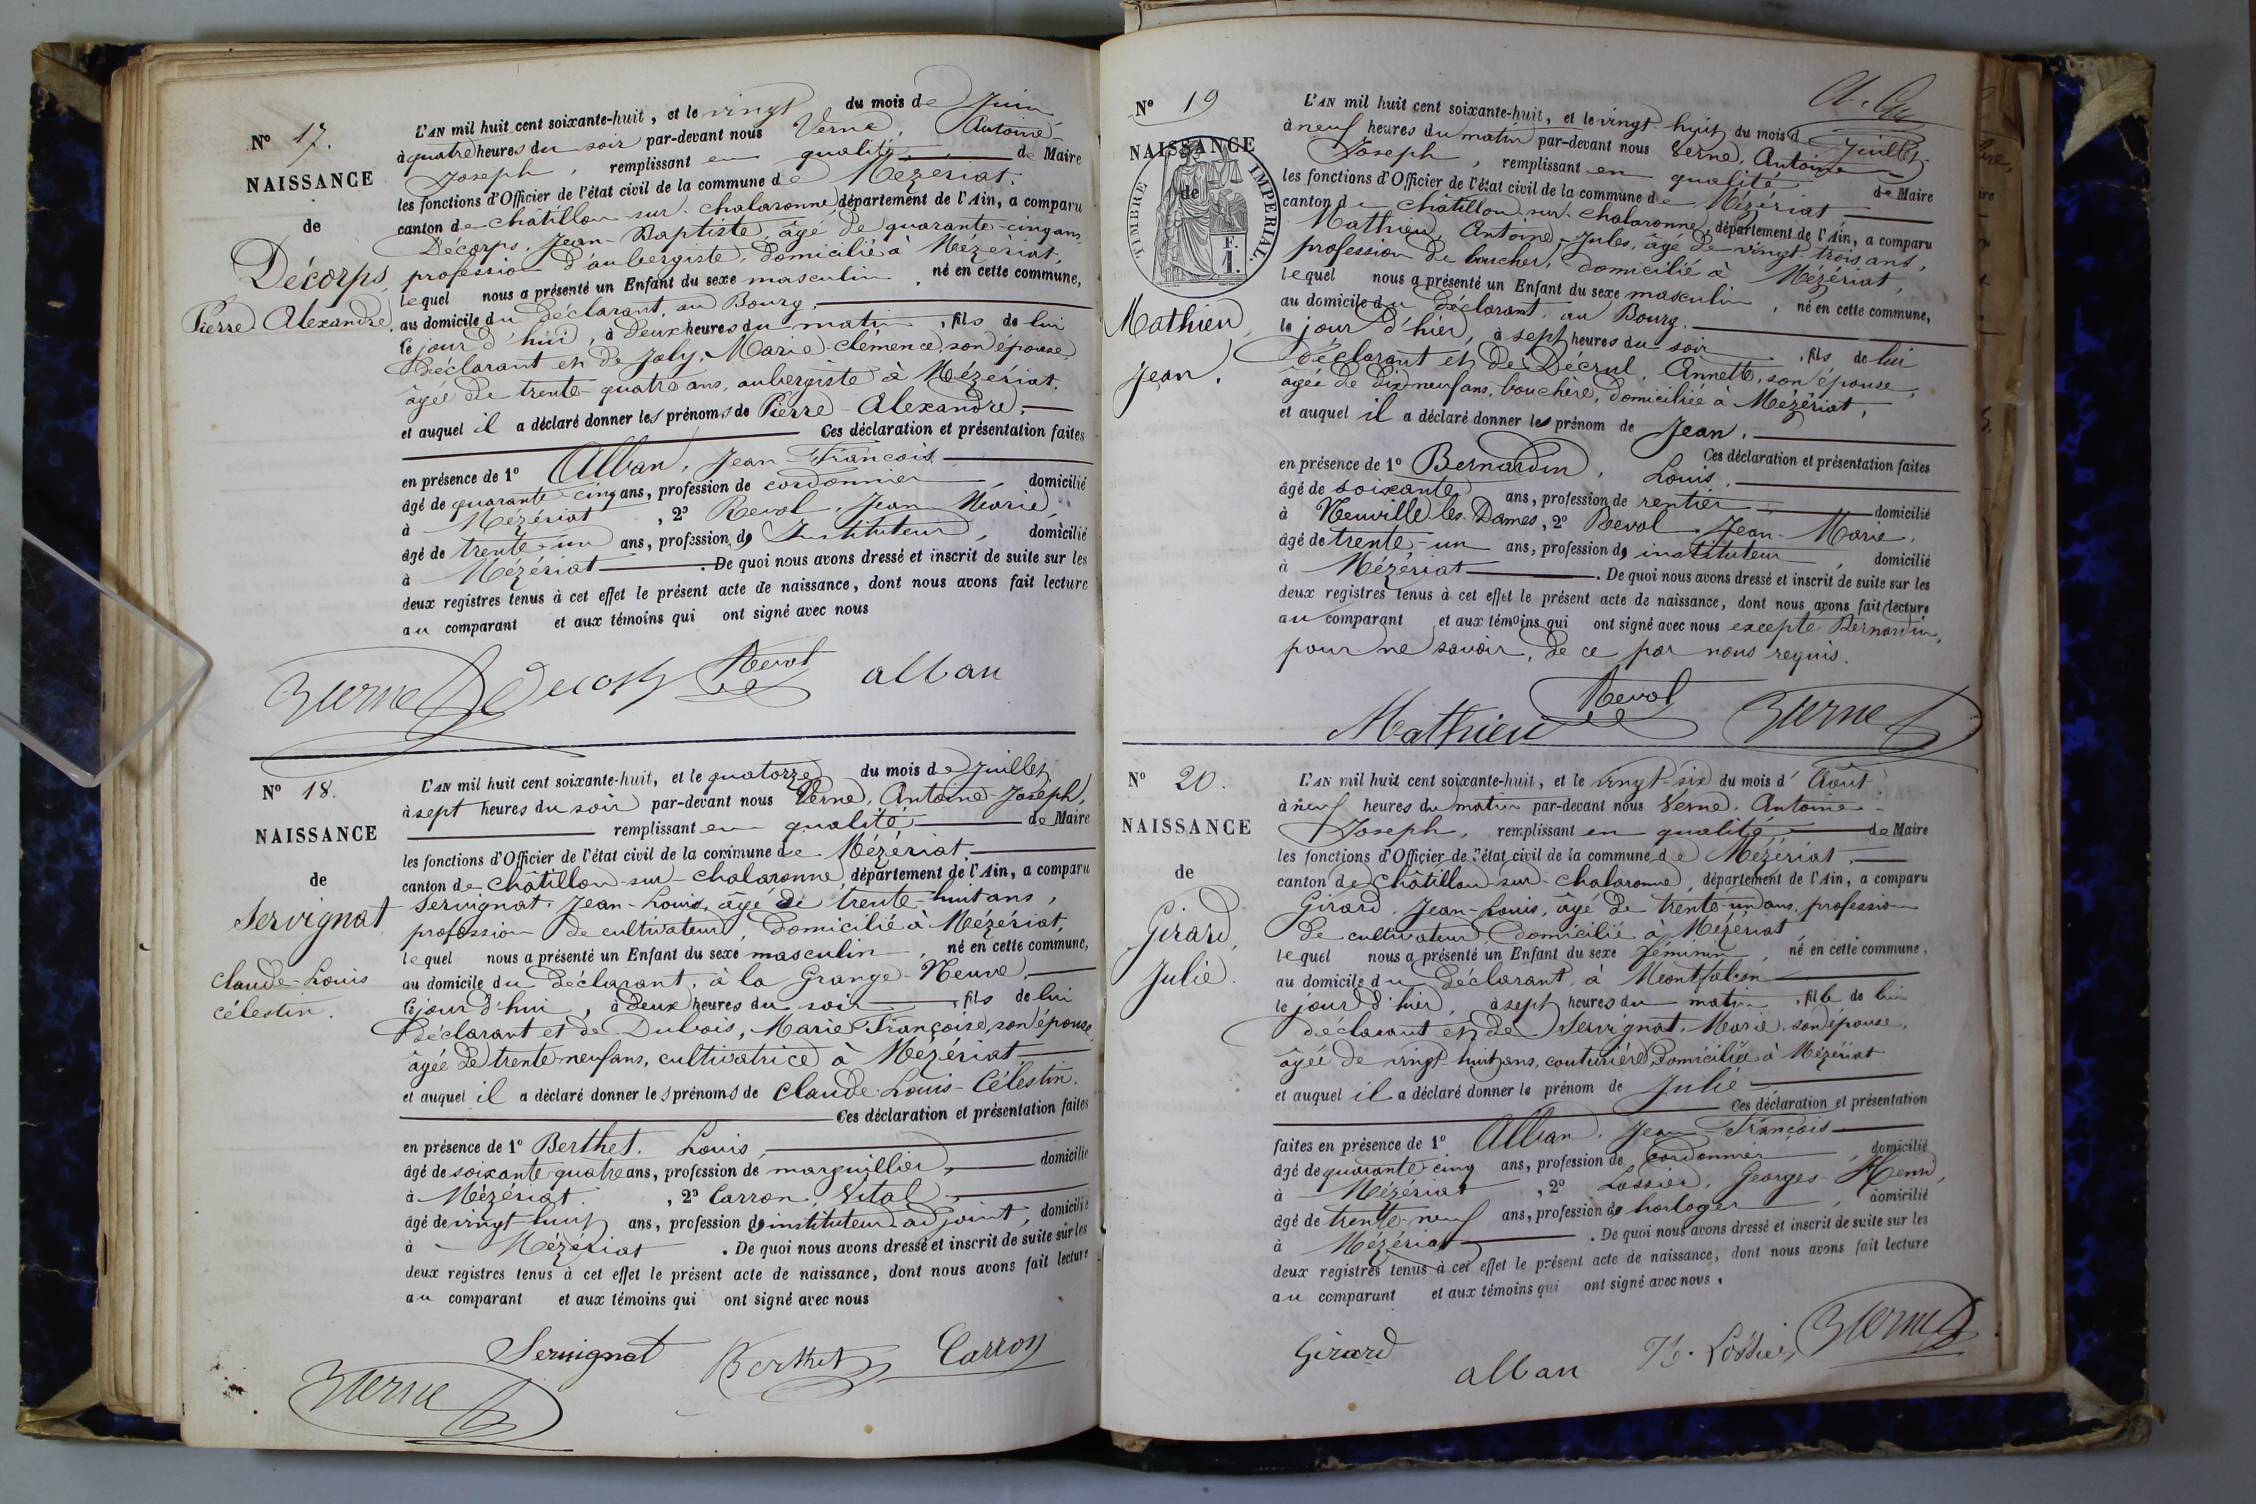 N° 17.
NAISSANCE
de
Décorps,
Pierre Alexandre
L'AN mil huit cent soixante-huit, et le vingt du mois de Juin
à quatre heures du soir par-devant nous Verne, Antoine-
Joseph, remplissant en qualité de Maire
les fonctions d'Officier de l'état civil de la commune de Mézériat.
canton de Châtillon-sur-Chalaronne, département de l'Ain, a comparu
Décorps, Jean-Baptiste, âgé de quarante-cinq ans,
profession d'aubergiste, domicilié à Mézériat,
lequel nous a présenté un Enfant du sexe masculin, né en cette commune,
au domicile du déclarant, au Bourg,
le jour d'hui, à deux heures du matin, fils de lui
déclarant et de Joly, Marie-Clémence, son épouse,
âgée de trente-quatre ans, aubergiste à Mézériat,
et auquel il a déclaré donner les prénoms de Pierre-Alexandre,
Ces déclaration et présentation faites
en présence de 1° Alban, Jean-François
âgé de quarante-cinq ans, profession de cordonnier domicilié
à Mézériat, 2° Revol, Jean Marie,
âgé de trente-un ans, profession d' Instituteur, domicilié
à Mézériat. De quoi nous avons dressé et inscrit de suite sur les
deux registres tenus à cet effet le présent acte de naissance, dont nous avons fait lecture
au comparant et aux témoins qui ont signé avec nous
Verne Decorps Revol alban
N° 18.
NAISSANCE
de
Servignat
Claude-Louis
Célestin.
L'AN mil huit cent soixante-huit, et le quatorze du mois de Juillet
à sept heures du soir par-devant nous Verne, Antoine-Joseph,
remplissant en qualité de Maire
les fonctions d'Officier de l'état civil de la commune de Mézériat
canton de Châtillon-sur-Chalaronne, département de l'Ain, a comparu
Servignat, Jean-Louis, âgé de trente-huit ans,
profession de cultivateur, domicilié à Mézériat,
lequel nous a présenté un Enfant du sexe masculin, né en cette commune,
au domicile du déclarant, à la Grange-Neuve,
le jour d'hui, à deux heures du soir, fils de lui
déclarant et de Dubois, Marie Françoise, son épouse,
âgée de trente neuf ans, cultivatrice à Mézériat
et auquel il a déclaré donner les prénoms de Claude-Louis-Célestin.
Ces déclaration et présentation faites
en présence de 1° Berthet, Louis,
âgé de soixante-quatre ans, profession de marguillier, domicilié
à Mézériat, 2° Carron, Vital,
âgé de vingt huit ans, profession d' instituteur adjoint, domicilié
à Mézériat. De quoi nous avons dressé et inscrit de suite sur les
deux registres tenus à cet effet le présent acte de naissance, dont nous avons fait lecture
au comparant et aux témoins qui ont signé avec nous
Servignat Berthet Carron
Verne
N° 19
NAISSANCE
de
TIMBRE IMPERIAL
F.
1.
Mathieu,
Jean.
L'AN mil huit cent soixante-huit, et le vingt-huit du mois d Juillet
à neuf heures du matin par-devant nous Verne, Antoine
Joseph, remplissant en qualité de Maire
les fonctions d'Officier de l'état civil de la commune de Mézériat
canton de Châtillon-sur-Chalaronne, département de l'Ain, a comparu
Mathieu, Antoine-Jules, âgé de vingt-trois ans,
profession de boucher, domicilié à Mézériat,
lequel nous a présenté un Enfant du sexe masculin, né en cette commune,
au domicile du déclarant, au Bourg.
le jour d'hier, à sept heures du soir, fils de lui
déclarant et de Décrul, Annette, son épouse,
âgée de dix neuf ans, bouchère, domiciliée à Mézériat,
et auquel il a déclaré donner les prénom de Jean.
Ces déclaration et présentation faites
en présence de 1° Bernardin, Louis,
âgé de soixante ans, profession de rentier domicilié
à Neuville les Dames, 2° Revol, Jean-Marie,
âgé de trente-un ans, profession d' instituteur, domicilié
à Mézériat. De quoi nous avons dressé et inscrit de suite sur les
deux registres tenus à cet effet le présent acte de naissance, dont nous avons fait lecture
au comparant et aux témoins qui ont signé avec nous excepté Bernardin,
pour ne savoir, de ce par nous requis.
Mathieu Revol Verne
N° 20.
NAISSANCE
de
Girard,
Julie.
L'AN mil huit cent soixante-huit, et le vingt-six du mois d' Août
à neuf heures du matin par-devant nous Verne, Antoine-
Joseph, remplissant en qualité de Maire
les fonctions d'Officier de l'état civil de la commune de Mézériat,
canton de Châtillon-sur-Chalaronne, département de l'Ain, a comparu
Girard, Jean-Louis, âgé de trente-un ans, profession
de cultivateur, domicilié à Mézériat
lequel nous a présenté un Enfant du sexe féminin, né en cette commune,
au domicile du déclarant, à Montfalcon
le jour d'hier, à sept heures du matin, fille de lui
déclarant et de Servignat, Marie, son épouse,
âgée de vingt-huit ans, couturière domiciliée à Mézériat
et auquel il a déclaré donner le prénom de Julie
Ces déclaration et présentation
faites en présence de 1° Alban, Jean François
âgé de quarante-cinq ans, profession de cordonnier, domicilié
à Mézériat, 2° Lassier, Georges-Henri,
âgé de trente-neuf ans, profession d' horloger, domicilié
à Mézériat. De quoi nous avons dressé et inscrit de suite sur les
deux registres tenus à cet effet le présent acte de naissance, dont nous avons fait lecture
au comparant et aux témoins qui ont signé avec nous.
Girard alban H. Lossier Verne